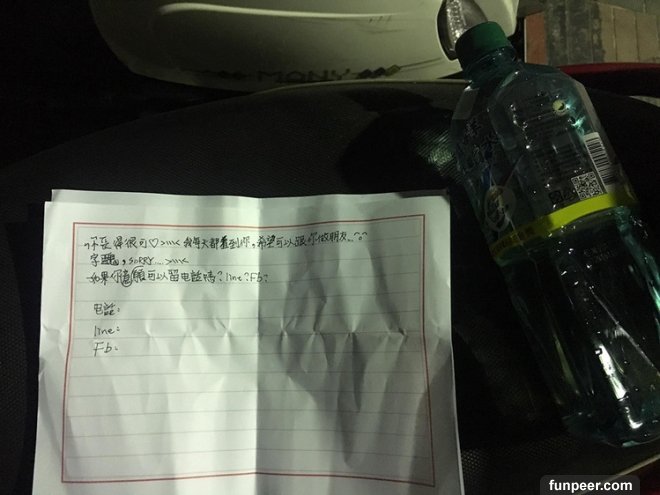 MANY
你長得很可♡>ııı< 我每天都看到你,希望可以跟你做朋友..^_^
字醜,SORRY....>ııı<
如果你願意可以留電話嗎?line?Fb?
电話:
line:
Fb:
funpeer.com